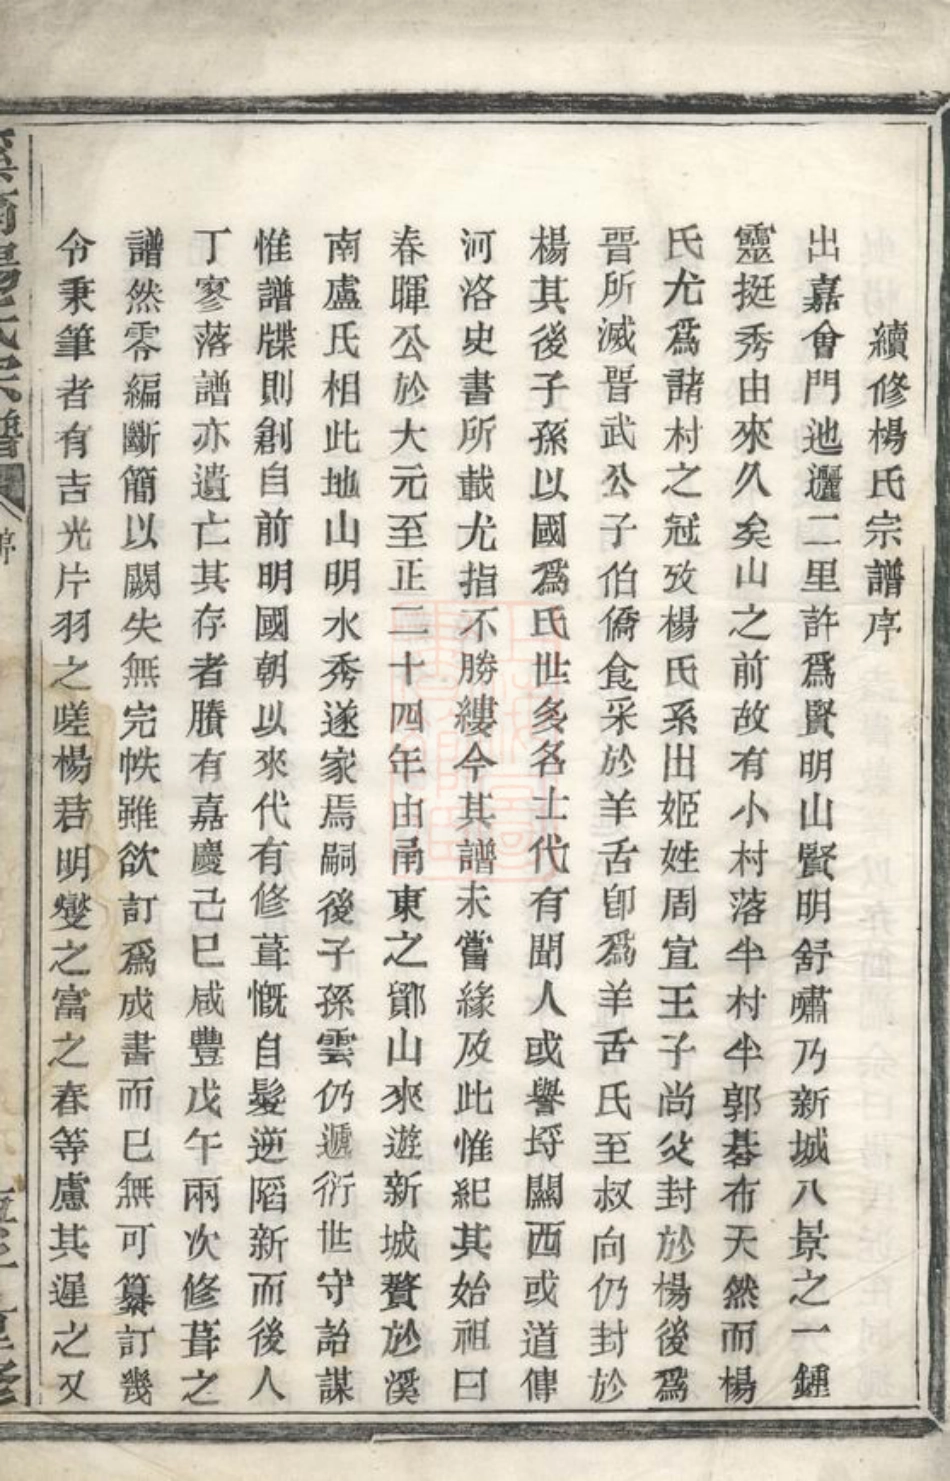 續修楊氏宗譜序
出嘉會門迆邐二里許爲賢明山賢明舒嘯乃新城八景之一鍾
靈挺秀由來久矣山之前故有小村落半村半郭碁布天然而楊
氏尤爲諸村之冠攷楊氏系出姬姓周宣王子尚父封於楊後爲
晋所滅晋武公子伯僑食采於羊舌卽爲羊舌氏至叔向仍封於
楊其後子孫以國爲氏世多名士代有聞人或譽埒關西或道傳
河洛史書所載尤指不勝縷今其譜未嘗緣及此惟紀其始祖曰
春暉公於大元至正二十四年由甬東之鄮山來遊新城贅於溪
南盧氏相此地山明水秀遂家焉嗣後子孫雲仍遞衍世守詒謀
惟譜牒則創自前明國朝以來代有修葺慨自髮逆䧟新而後人
丁寥落譜亦遺亡其存者賸有嘉慶己巳咸豐戊午兩次修葺之
譜然零編斷簡以闕失無完帙雖欲訂爲成書而已無可纂訂幾
令秉筆者有吉光片羽之嗟楊君明燮之富之春等慮其遲之又
溪南楊氏宗譜
序